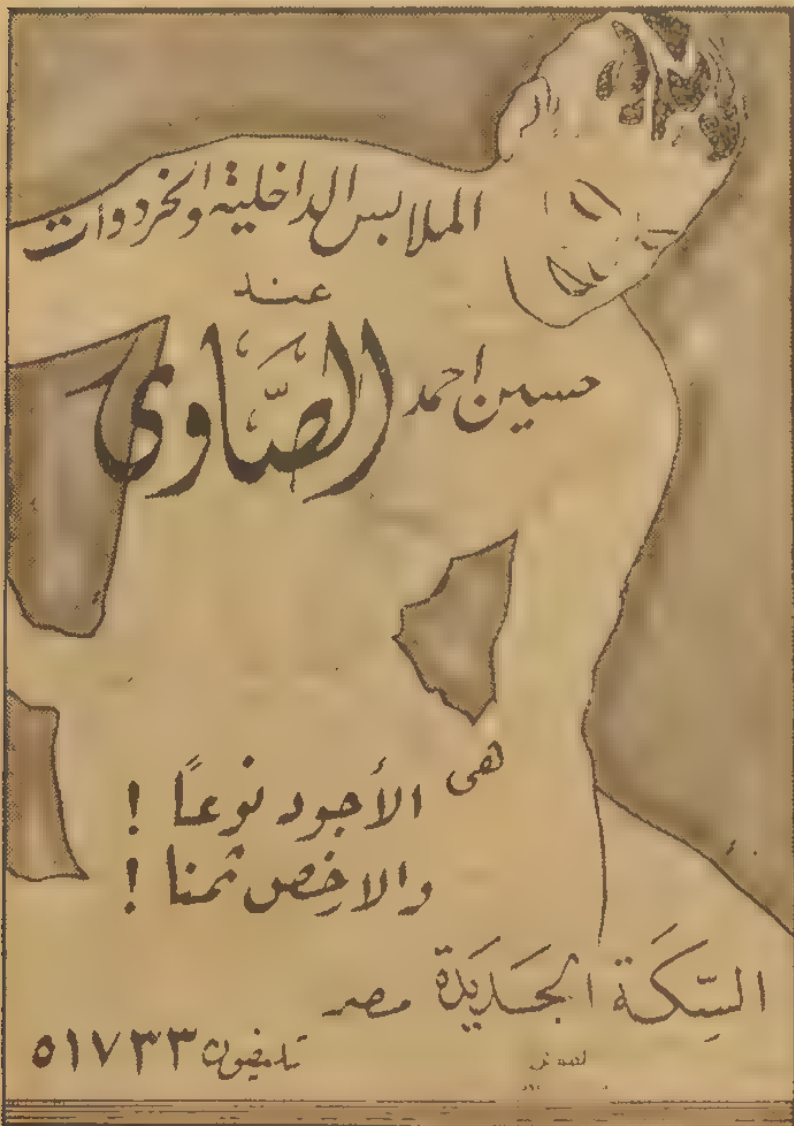 الملابس الداخلية والخردوات
عند
حسين احمد الصَّاوى
هى الأجود نوعاً !
والارخص ثمنا !
السِّكَة الجَديدَة مصر
تليفون ٥١٧٣٣